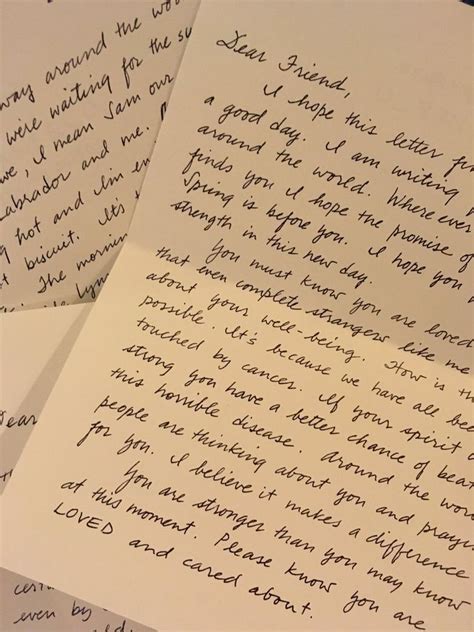 way around the wo
were waiting for the su
ve, I mean Sam our
abrador and me.
g hot and I'm en
t biscuit. It's
The mornin
Dear Friend,
I hope this letter fin
a good day. I am writing
around the world. Where ever
finds you I hope the promise of
Spring is before you. I hope you
strength in this new day.
You must know you are loved
that even complete strangers like me
about your well-being. How is th
possible. It's because we have all bee
touched by cancer. If your spirit
strong you have a better chance of beat
this horrible disease. Around the wor
people are thinking about you and pray
for you. I believe it makes a difference
You are stronger than you may know
at this moment. Please know you are
LOVED and cared about.
Dear
even by